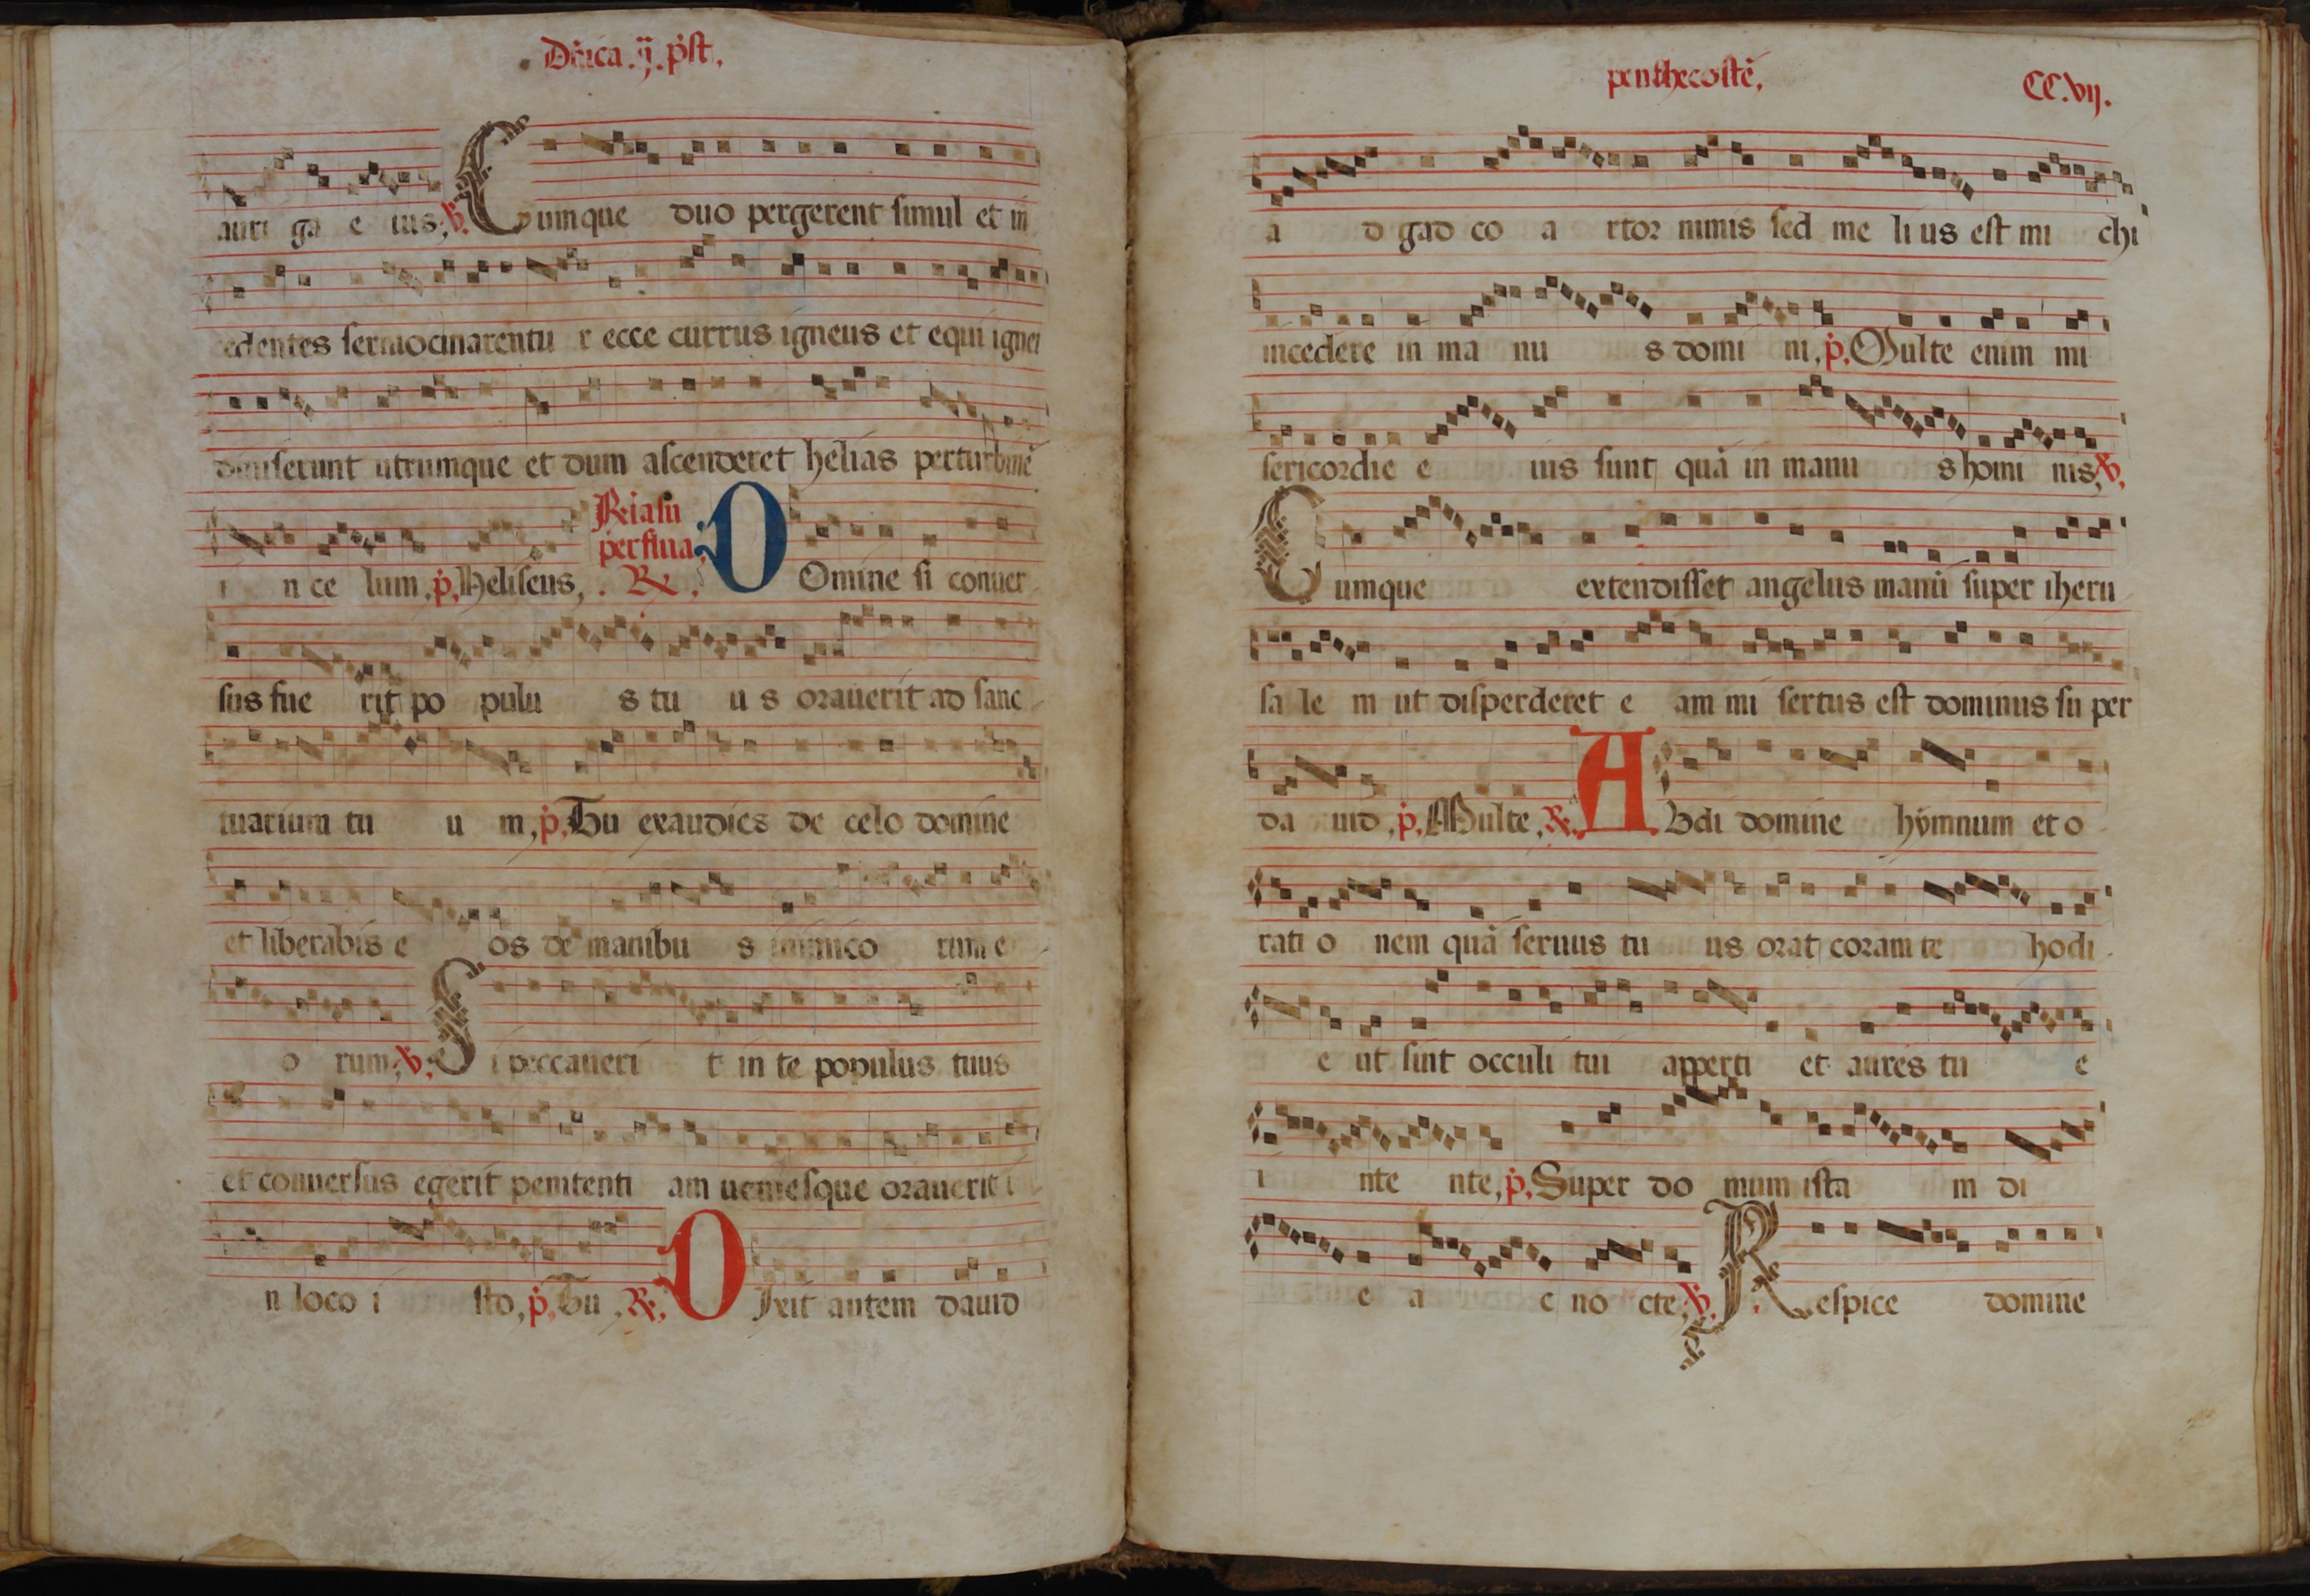 Dñica .ij. pͥst,
auri ga e ius, ℣. Cumque duo pergerent simul et in
cedentes sermocinarentu r ecce currus igneus et equi ignei
diuiserunt utrumque et dum ascenderet helias per turbinē
i n ce lum, p̊, Heliseus, R̸ ia sū
per fīua, . R̸. DOmine si conuer
sus fue rit po pulu s tu u s orauerit ad sanc
tuarium tu u m, p̊, Tu exaudies de celo domine
et liberabis e os de manibu s inimico rum e
o rum, ℣, Si peccaueri t in te populus tuus
et conuersus egerit penitenti am ueniesque orauerit i
n loco i sto, p̊, Tu, R̸, DIxit autem dauid
penthecostē, CC.vij.
a d gad co a rtor nimis sed me li us est mi chi
incedere in ma nu s domi ni, p̊, Multe enim mi
sericordie e ius sunt quā in manu s homi nis, ℣,
Cumque extendisset angelus manū super iheru
sa le m ut disperderet e am mi sertus est dominus su per
da uid, p̊, Multe, R̸, AVdi domine hymnum et o
rati o nem quā seruus tu us orat coram te hodi
e ut sint occuli tui apperti et aures tu e
i nte nte, p̊, Super do mum ista m di
e a c no cte, ℣. Respice domine